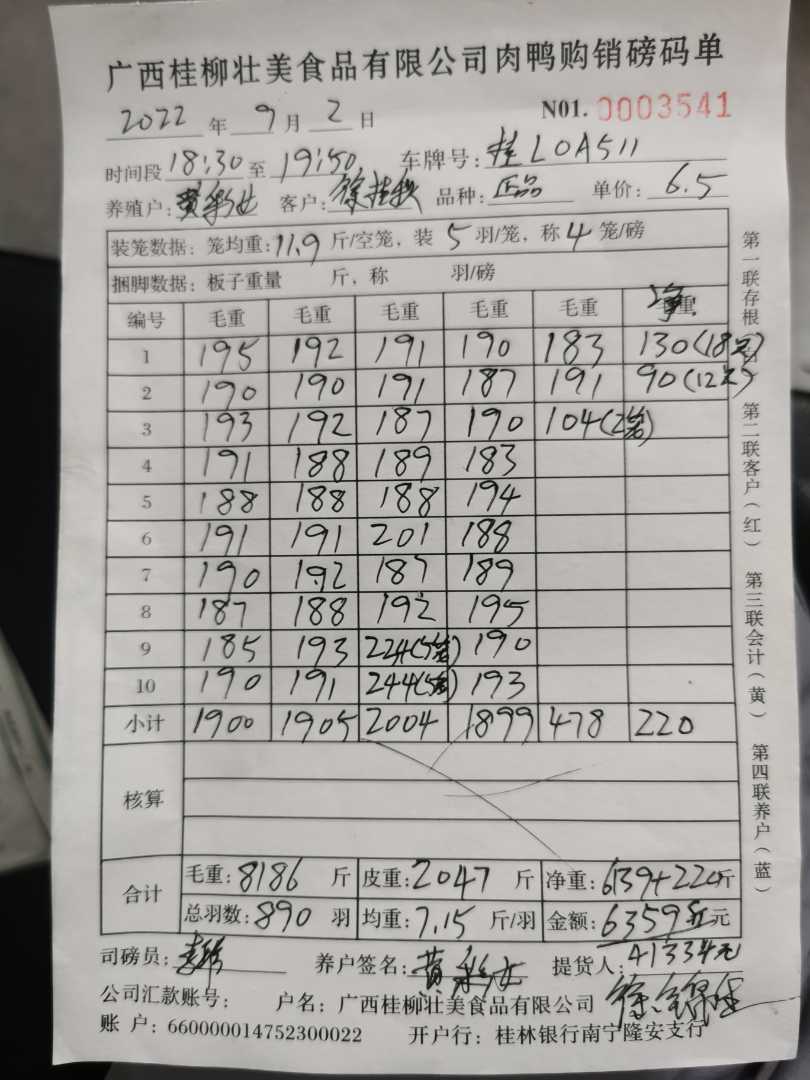 广西桂柳壮美食品有限公司肉鸭购销磅码单
2022 年 9 月 2 日 N01. 0003541
时间段 18:30 至 19:50 车牌号: 桂L0A511
养殖户: 黄彩女 客户: 徐桂秋 品种: 正品 单价: 6.5
装笼数据: 笼均重: 11.9 斤/空笼, 装 5 羽/笼, 称 4 笼/磅
捆脚数据: 板子重量 斤, 称 羽/磅
编号 毛重 毛重 毛重 毛重 毛重 净重
1 195 192 191 190 183 130(18只)
2 190 190 191 187 191 90(12只)
3 193 192 187 190 104(2笼)
4 191 188 189 183
5 188 188 188 194
6 191 191 201 188
7 190 192 187 189
8 187 188 192 195
9 185 193 224(5笼) 190
10 190 191 244(5笼) 193
小计 1900 1905 2004 1899 478 220
核算
合计 毛重: 8186 斤 皮重: 2047 斤 净重: 6139+220斤
总羽数: 890 羽 均重: 7.15 斤/羽 金额: 6359斤元
41334元
司磅员: 养户签名: 黄彩女 提货人:
公司汇款账号: 户名: 广西桂柳壮美食品有限公司
账 户: 660000014752300022 开户行: 桂林银行南宁隆安支行
第一联存根
第二联客户(红)
第三联会计(黄)
第四联养户(蓝)